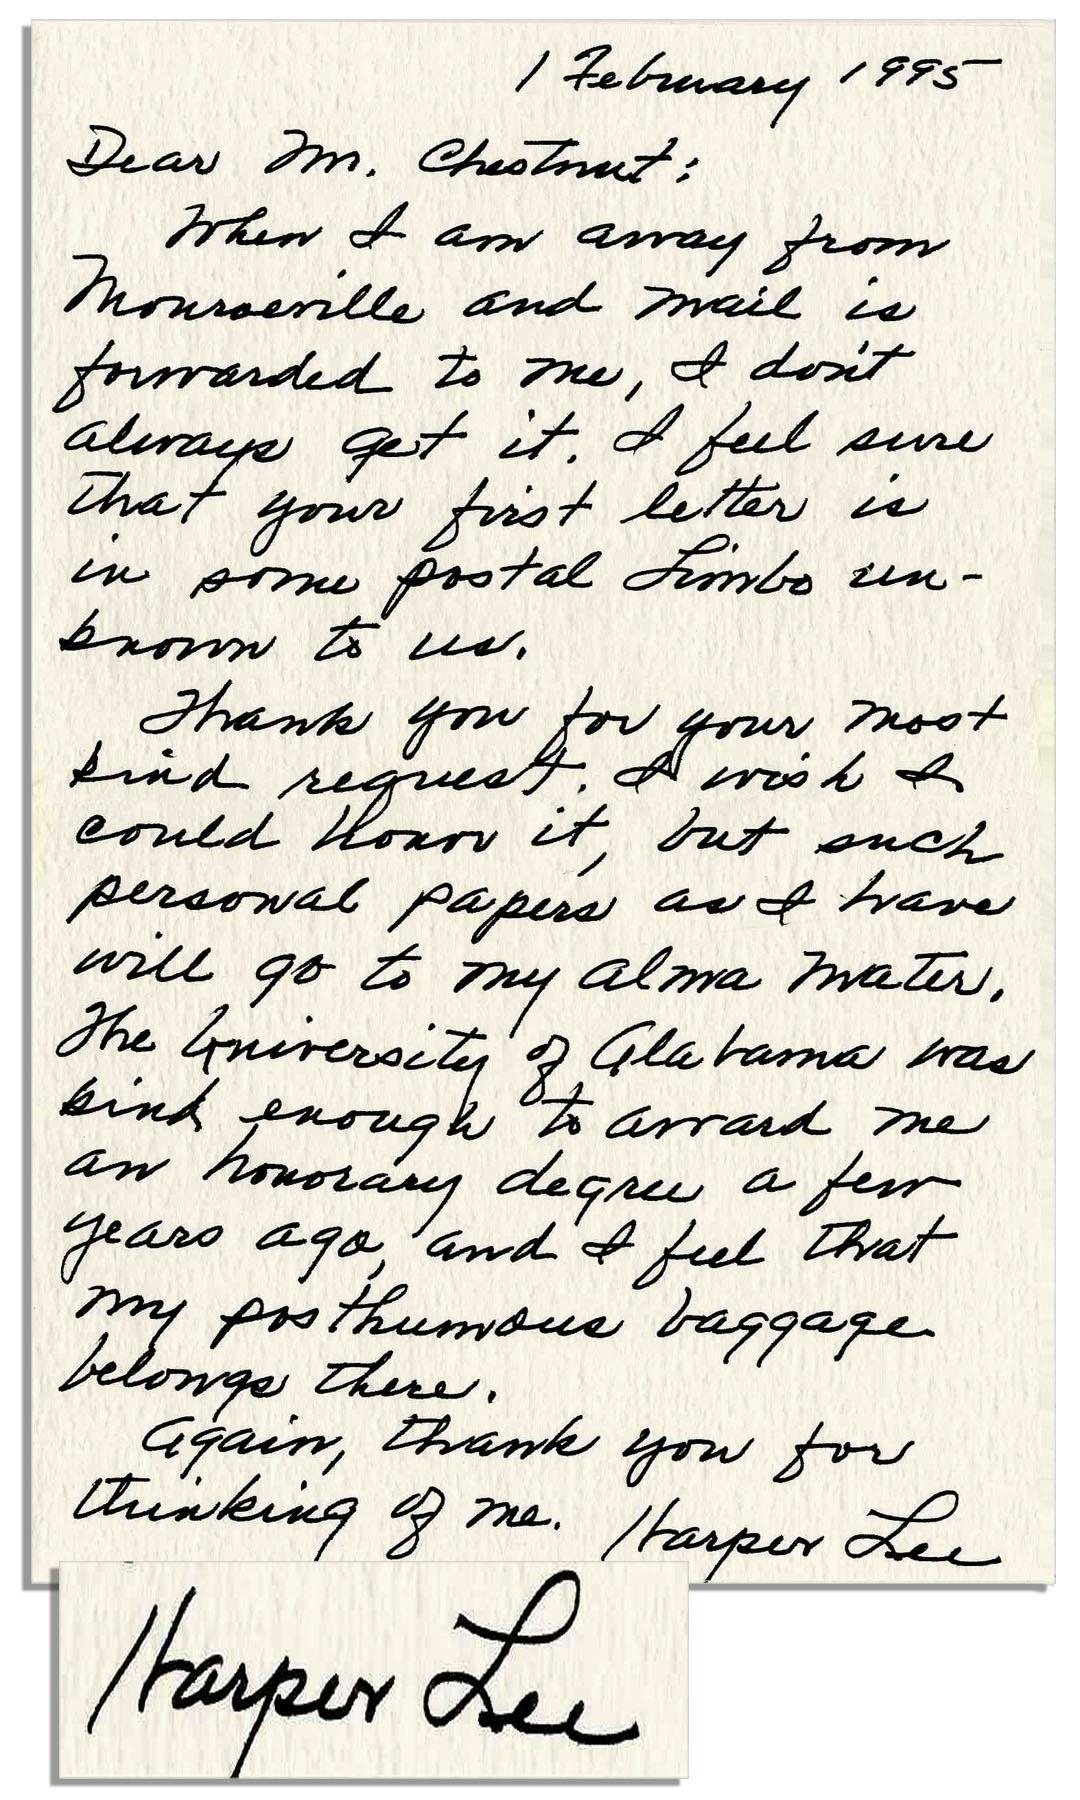 1 February 1995
Dear Mr. Chestnut:
When I am away from
Monroeville and mail is
forwarded to me, I don't
always get it. I feel sure
that your first letter is
in some postal Limbo un-
known to us.
Thank you for your most
kind request. I wish I
could honor it, but such
personal papers as I have
will go to my alma mater.
The University of Alabama was
kind enough to award me
an honorary degree a few
years ago, and I feel that
my posthumous baggage
belongs there.
Again, thank you for
thinking of me. Harper Lee
Harper Lee